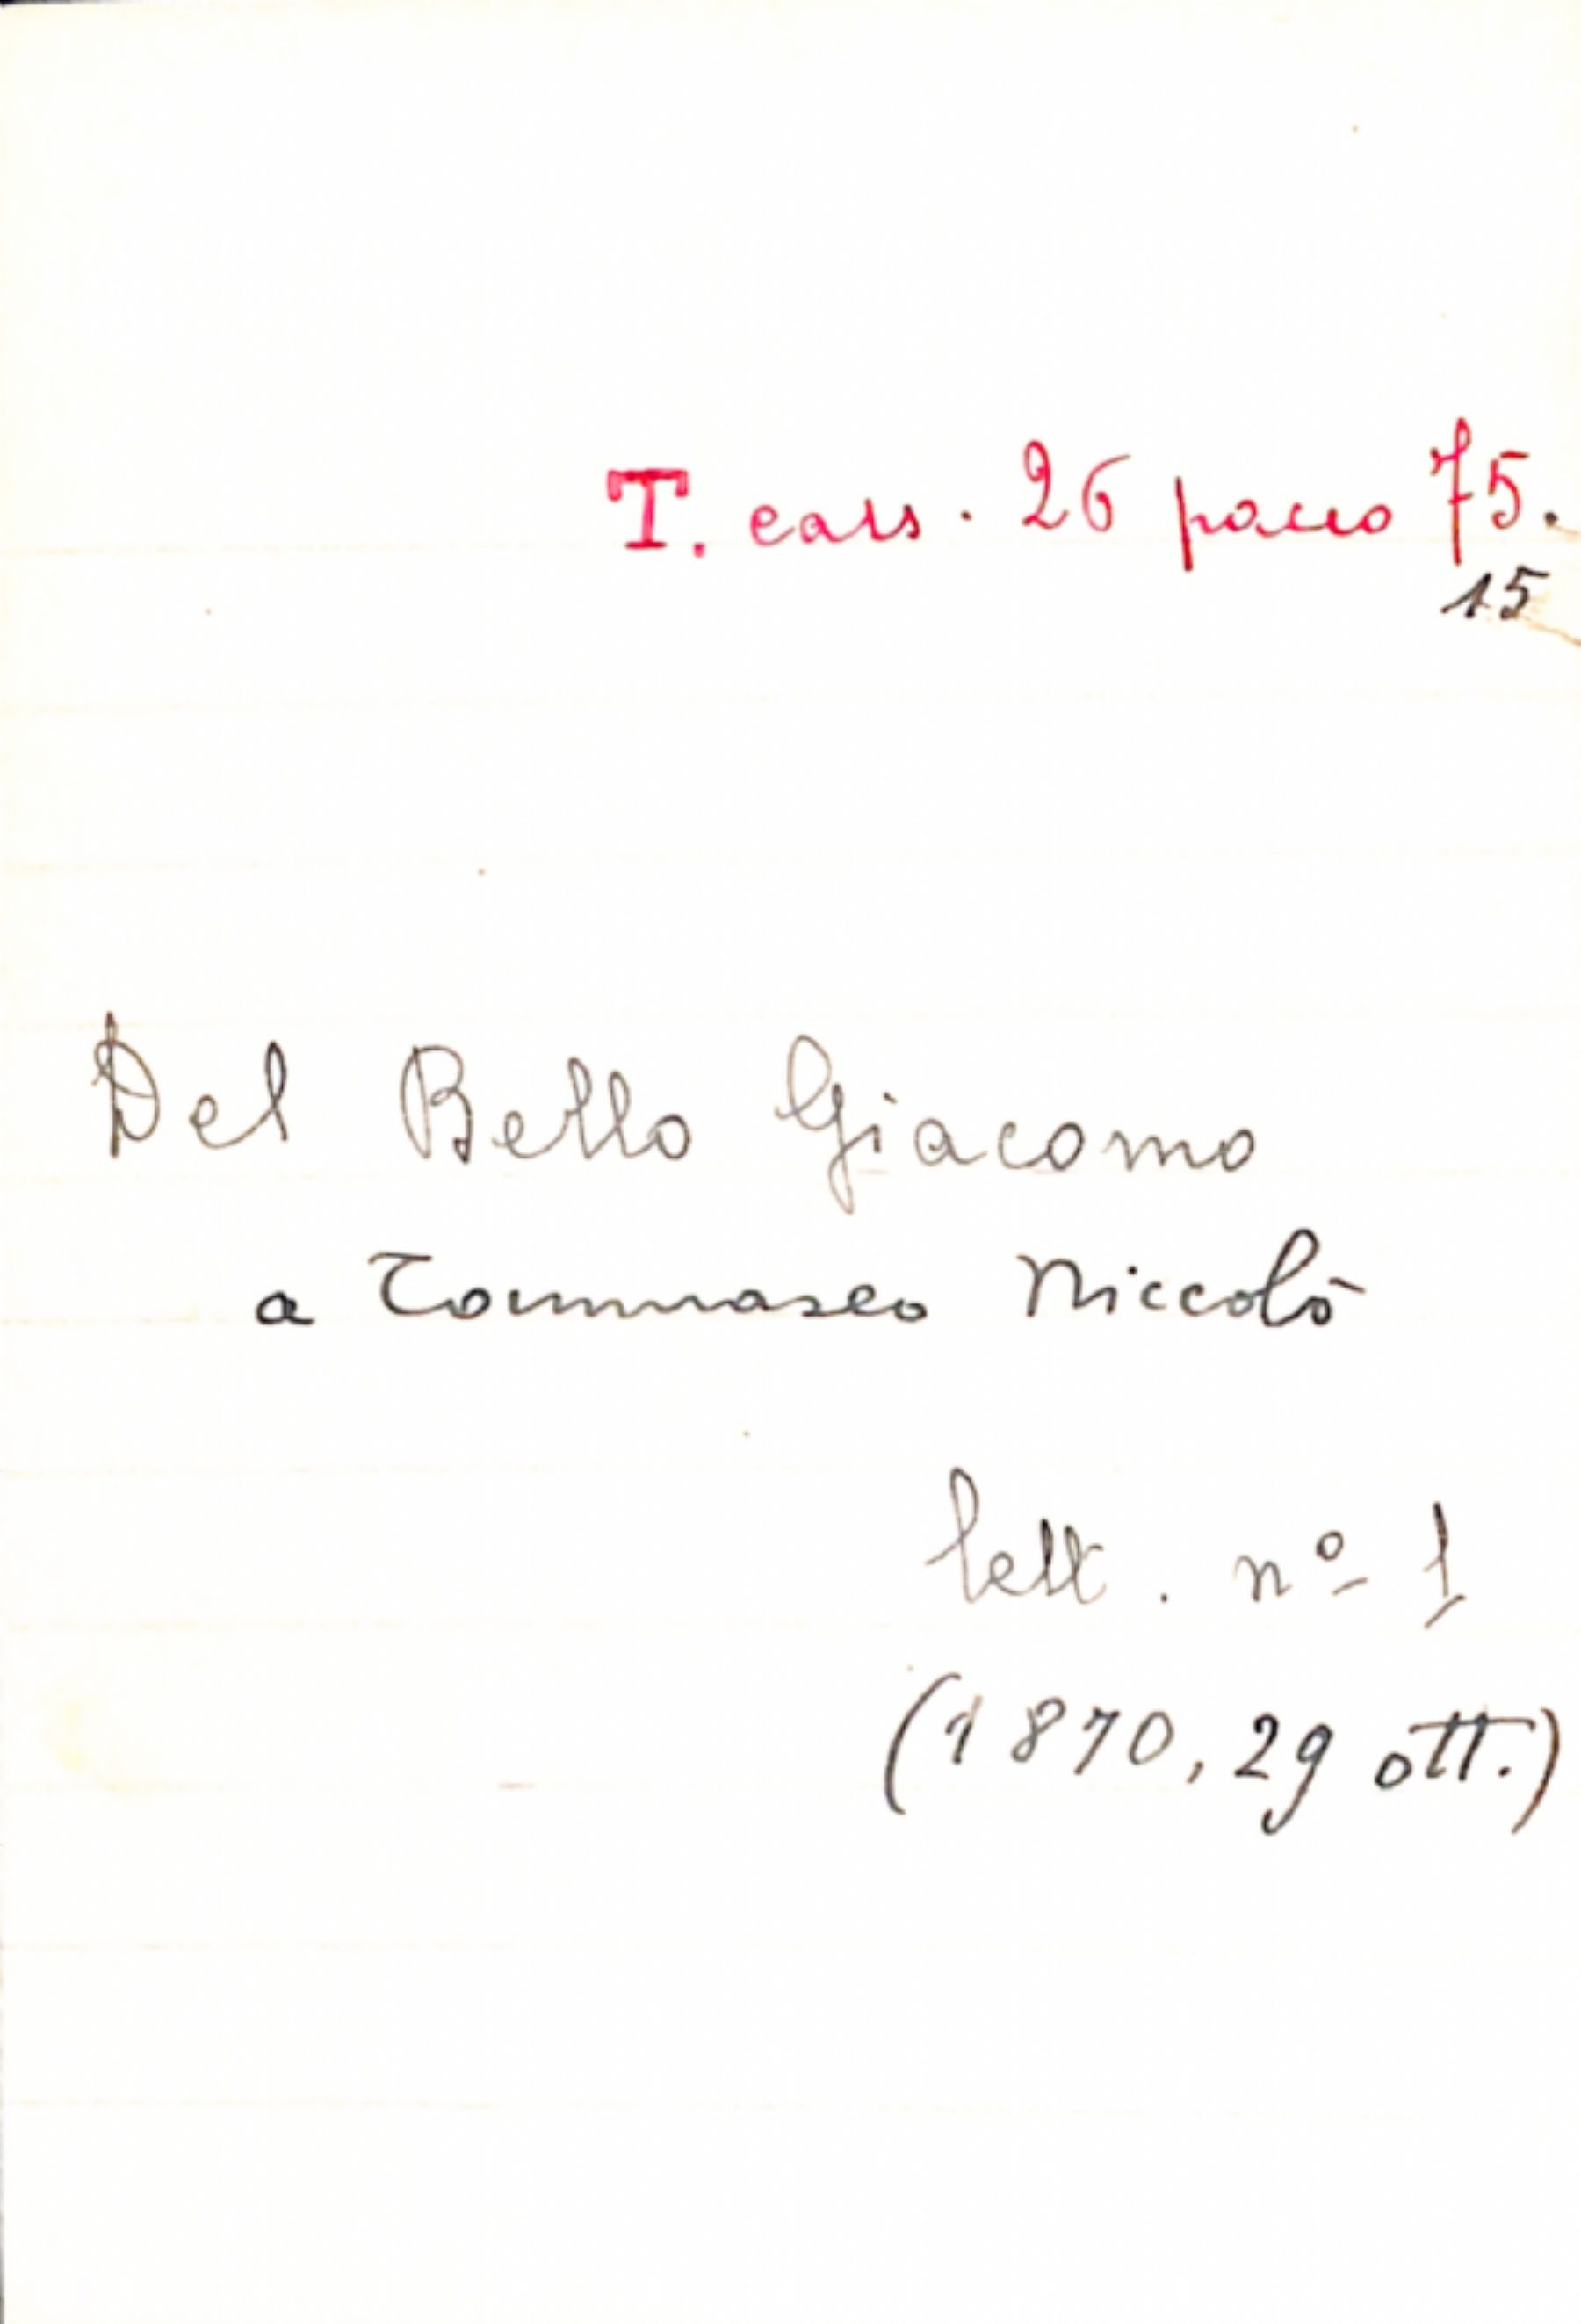 T. cass. 26 pacco 75.
15
Del Bello Giacomo
a Tommaseo Niccolò
lett. nº 1
(1870, 29 ott.)